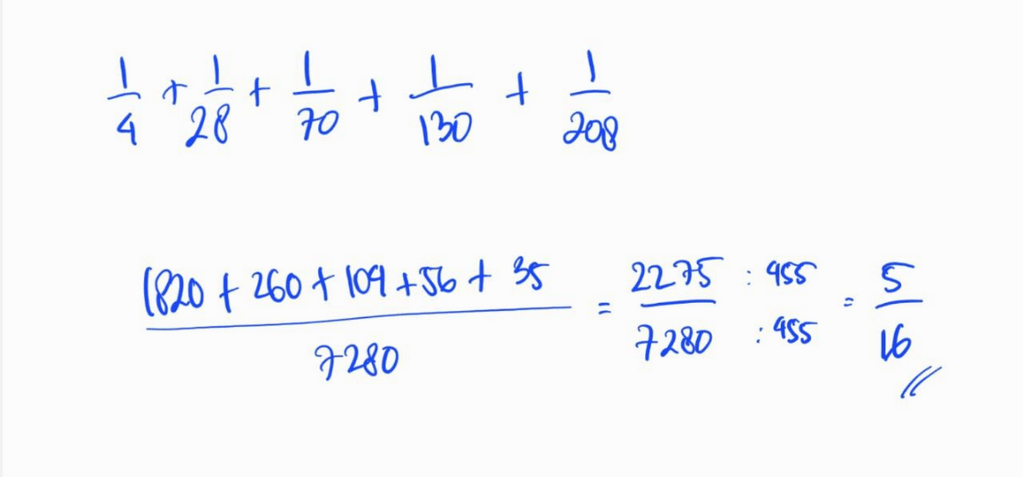 1/4 + 1/28 + 1/70 + 1/130 + 1/208
(1820 + 260 + 104 + 56 + 35)/7280 = 2275 : 455/7280 : 455 = 5/16 //